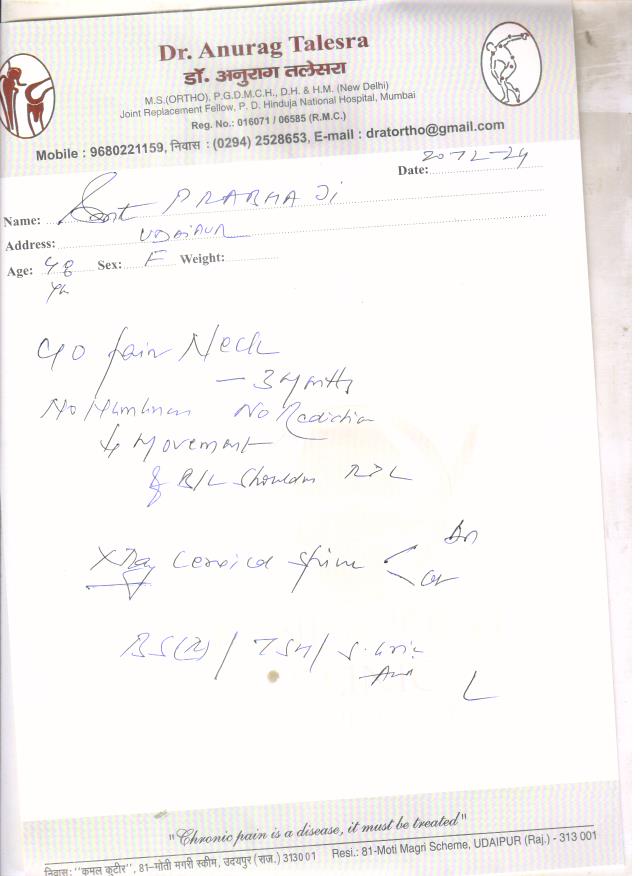 Dr. Anurag Talesra
डॉ. अनुराग तलेसरा
M.S.(ORTHO), P.G.D.M.C.H., D.H. & H.M. (New Delhi)
Joint Replacement Fellow, P. D. Hinduja National Hospital, Mumbai
Reg. No.: 016071 / 06585 (R.M.C.)
Mobile : 9680221159, निवास : (0294) 2528653, E-mail : dratortho@gmail.com
Date: 20-12-24
Name: PRABHA Ji
Address: UDAIPUR
Age: 48 Sex: F Weight:
Yr
C/O Pain Neck
- 3 Months
No Numbness No Radiation
↓ Movement
of B/L Shoulder R>L
X Ray Cervical Spine
BS(R) / TSH / S. Uric
Acid
"Chronic pain is a disease, it must be treated"
निवास: "कमल कूटीर", 81-मोती मगरी स्कीम, उदयपुर (राज.) 313001 Resi.: 81-Moti Magri Scheme, UDAIPUR (Raj.) - 313 001